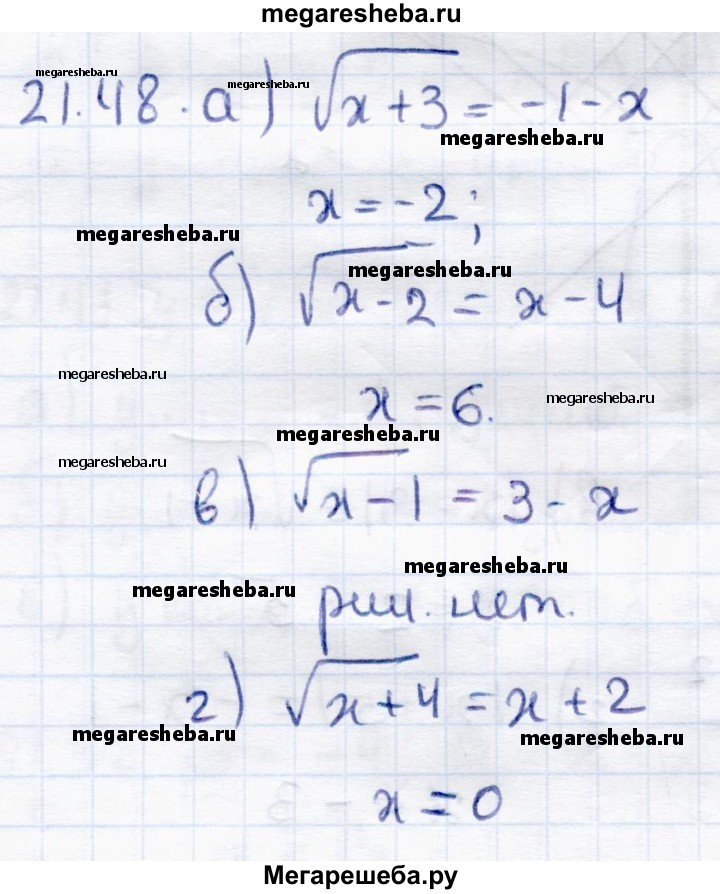 megaresheba.ru
megaresheba.ru
21.48. а) √x+3 = -1-x
megaresheba.ru
megaresheba.ru
x = -2;
megaresheba.ru
б) √x-2 = x-4
megaresheba.ru
megaresheba.ru
x = 6.
megaresheba.ru
megaresheba.ru
megaresheba.ru
в) √x-1 = 3-x
megaresheba.ru
megaresheba.ru
реш. нет.
г) √x+4 = x+2
megaresheba.ru
megaresheba.ru
x = 0
Мегарешеба.ру